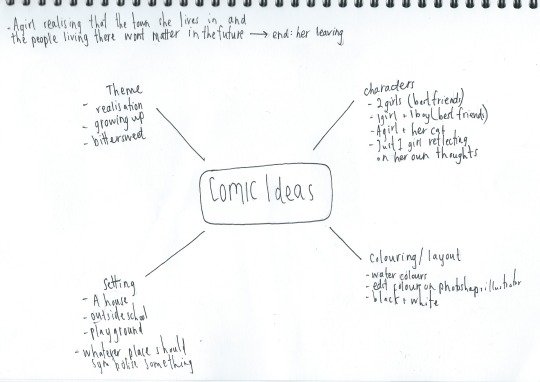 - A girl realising that the town she lives in and
the people living there wont matter in the future → end: her leaving
Theme
- realisation
- growing up
- bittersweet
characters
- 2 girls (best friends)
- 1 girl + 1 boy (best friends)
- A girl + her cat
- Just 1 girl reflecting
on her own thoughts
Comic Ideas
Setting
- A house
- outside school
- playground
- whatever place should
symbolise something
Colouring / layout
- water colours
- edit colour on photoshop + illustrator
- black + white